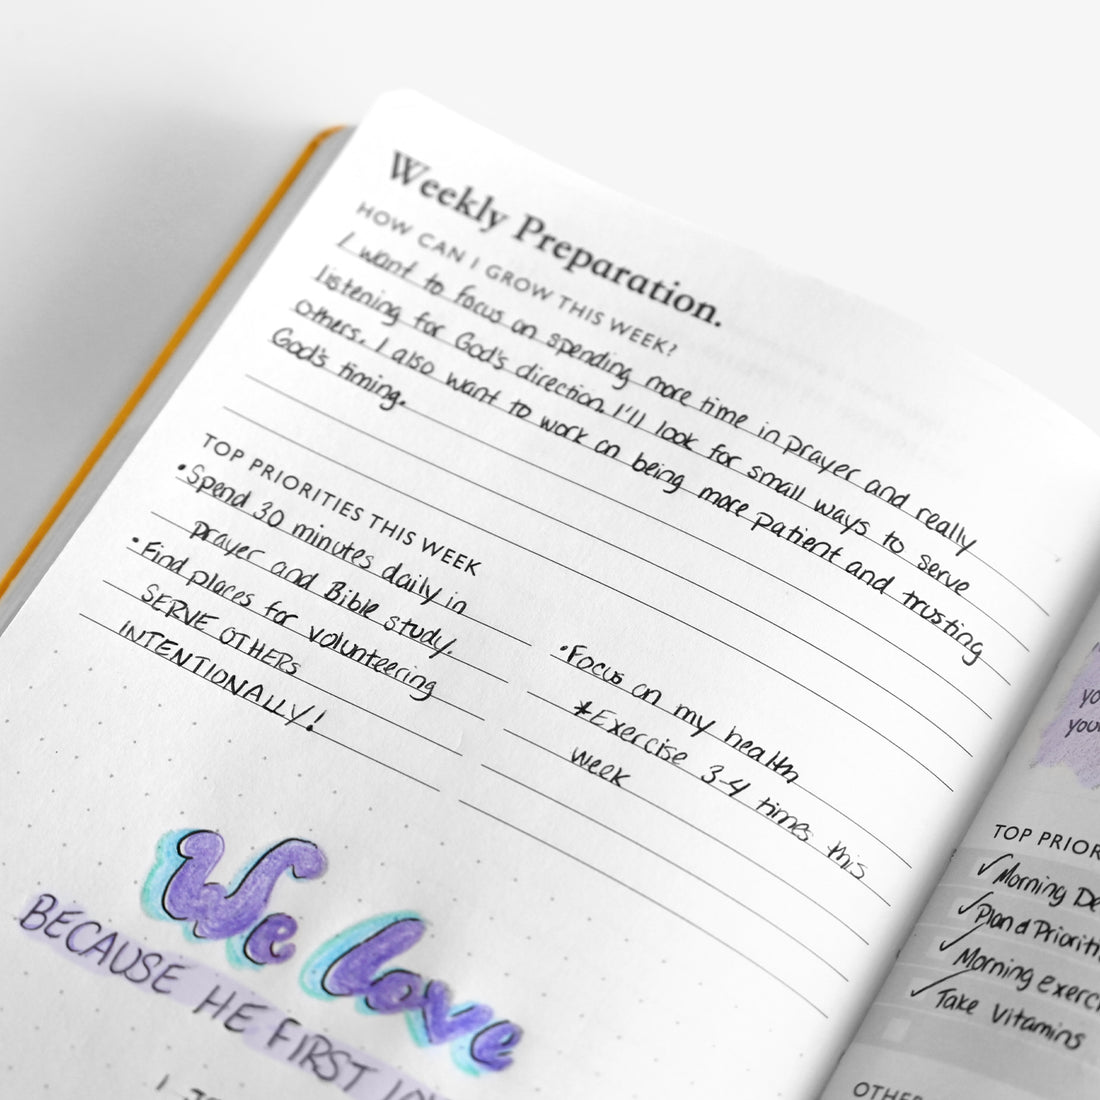 Weekly Preparation.
HOW CAN I GROW THIS WEEK?
I want to focus on spending more time in prayer and really
listening for God's direction. I'll look for small ways to serve
others. I also want to work on being more patient and trusting
God's timing.
TOP PRIORITIES THIS WEEK
•Spend 30 minutes daily in
prayer and Bible study.
•Find places for volunteering
SERVE OTHERS
INTENTIONALLY!
•Focus on my health
*Exercise 3-4 times this
week
We love
BECAUSE HE FIRST
TOP PRIOR
✓Morning De
✓Plan & Prioriti
✓Morning exerc
✓Take Vitamins
OTHER